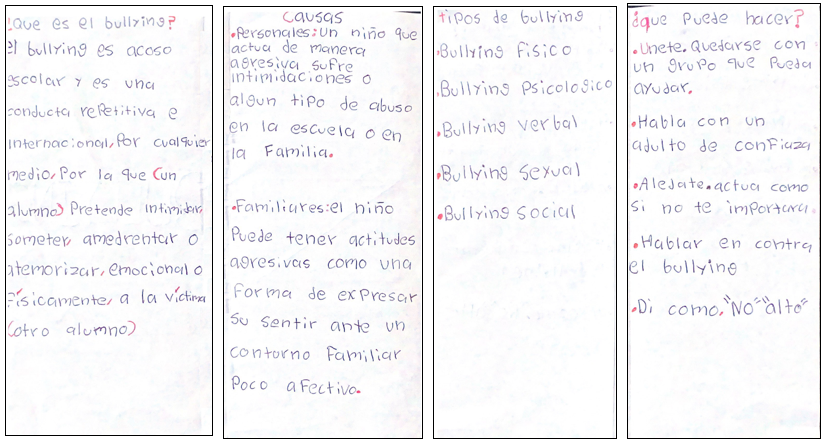 ¿que es el bullying?
el bullying es acoso
escolar y es una
conducta repetitiva e
internacional, Por cualquier
medio, Por la que (un
alumno) Pretende intimidar,
someter, amedrentar o
atemorizar, emocional o
Físicamente, a la víctima
(otro alumno)
Causas
•Personales: un niño que
actua de manera
agresiva sufre
intimidaciones o
algun tipo de abuso
en la escuela o en
la Familia.
•Familiares: el niño
Puede tener actitudes
agresivas como una
Forma de expresar
su sentir ante un
contorno Familiar
Poco afectivo.
tipos de bullying
•Bullying Fisico
•Bullying Psicologico
•Bullying verbal
•Bullying sexual
•Bullying social
¿que Puede hacer?
•Unete. Quedarse con
un grupo que Pueda
ayudar.
•Habla con un
adulto de conFiaza
•Aledate. actua como
si no te importara.
•Hablar en contra
el bullying
•Di como. "No" "alto"